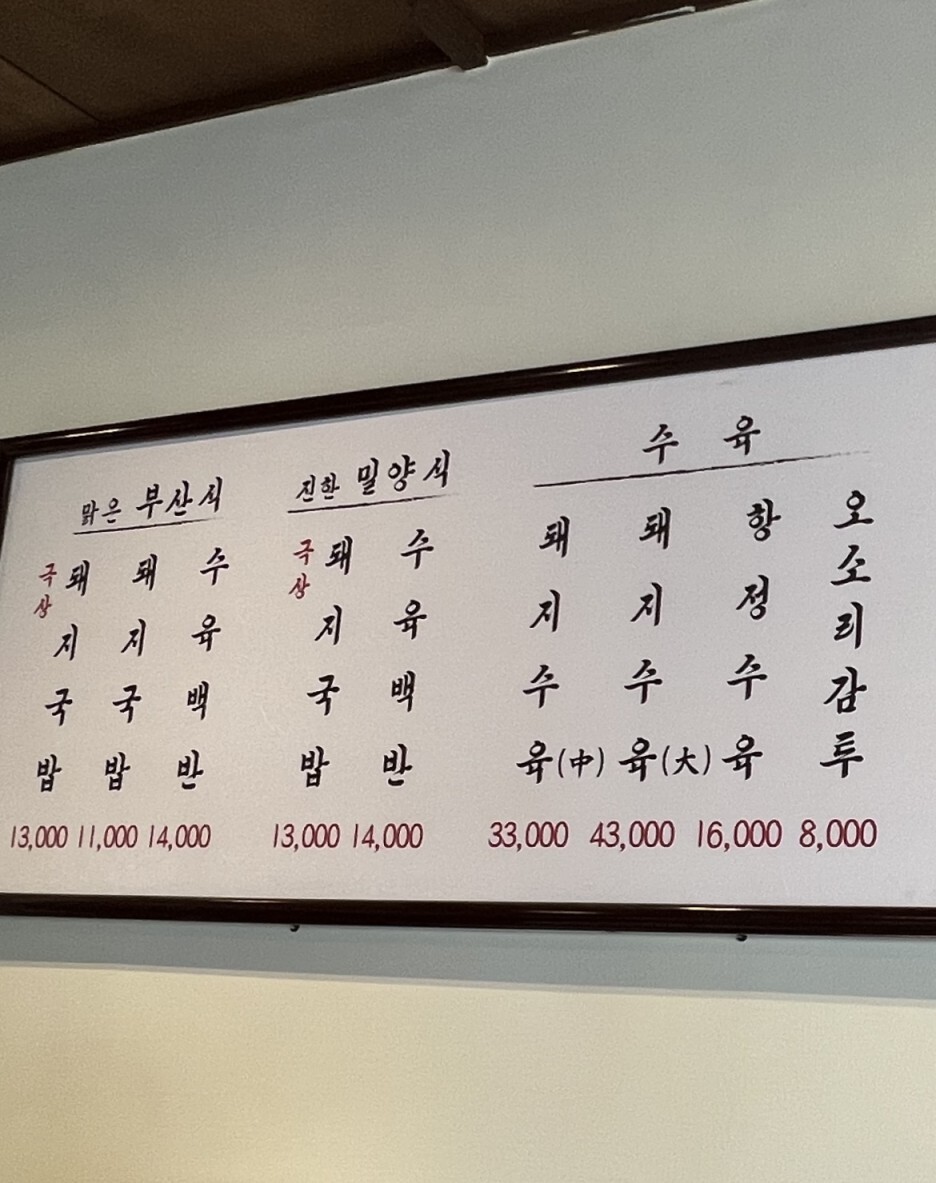 맑은 부산식
극상 돼지국밥 13,000
돼지국밥 11,000
수육백반 14,000
진한 밀양식
극상 돼지국밥 13,000
수육백반 14,000
수육
돼지수육(中) 33,000
돼지수육(大) 43,000
항정수육 16,000
오소리감투 8,000